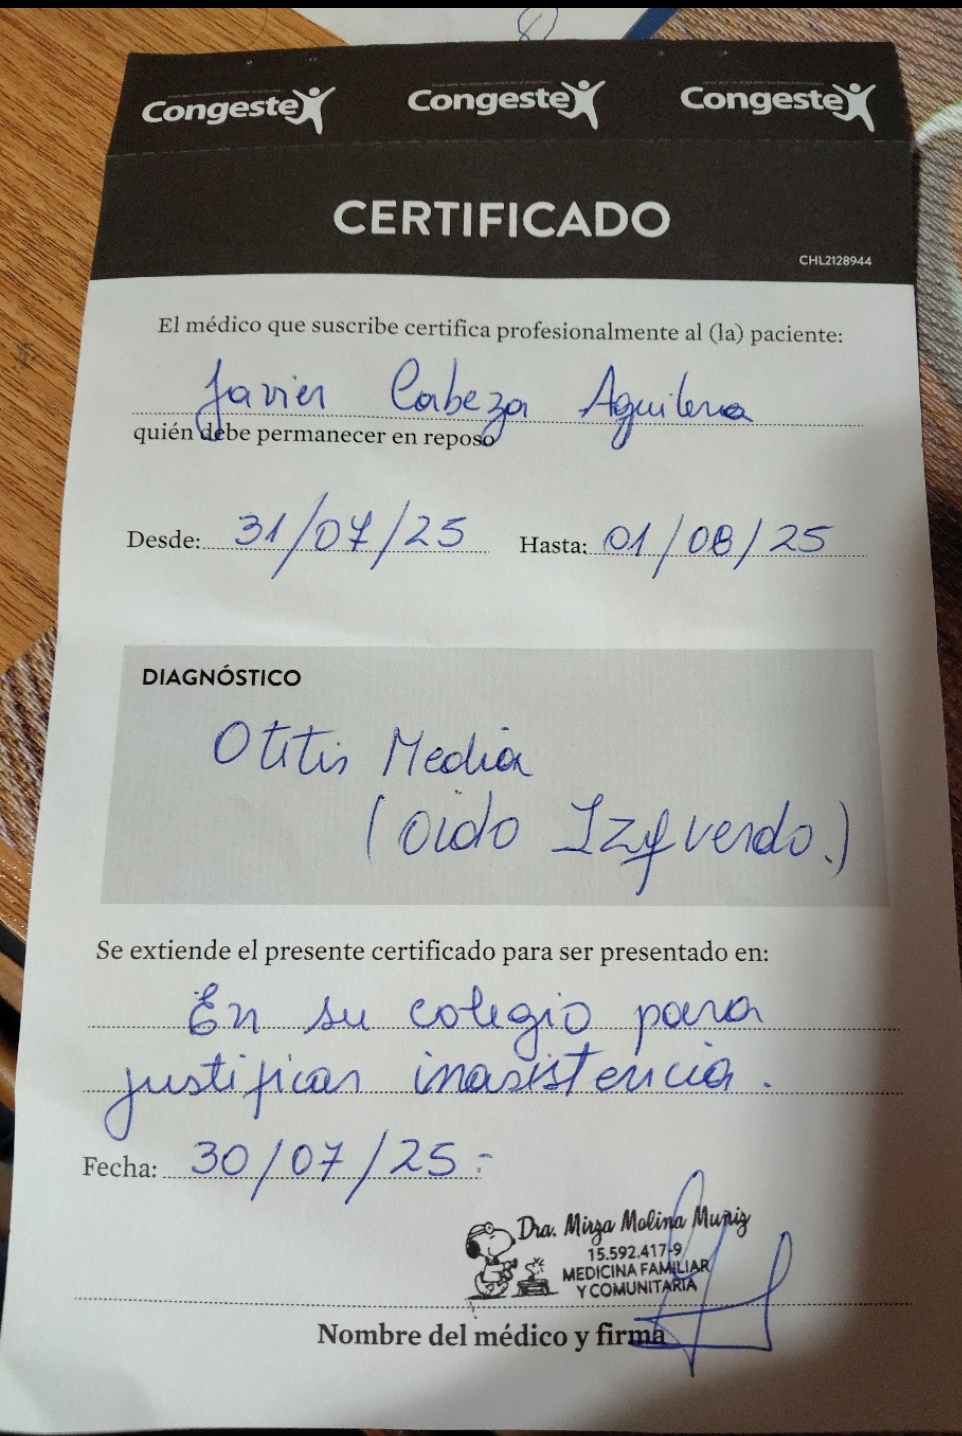 CongesteX CongesteX CongesteX
CERTIFICADO
CHL2128944
El médico que suscribe certifica profesionalmente al (la) paciente:
Javier Cabeza Aguilera
quién debe permanecer en reposo
Desde: 31/07/25 Hasta: 01/08/25
DIAGNÓSTICO
Otitis Media
(oido Izquerdo.)
Se extiende el presente certificado para ser presentado en:
En su colegio para
justificar inasistencia.
Fecha: 30/07/25.-
Dra. Mirza Molina Muñiz
15.592.417-9
MEDICINA FAMILIAR
Y COMUNITARIA
Nombre del médico y firma